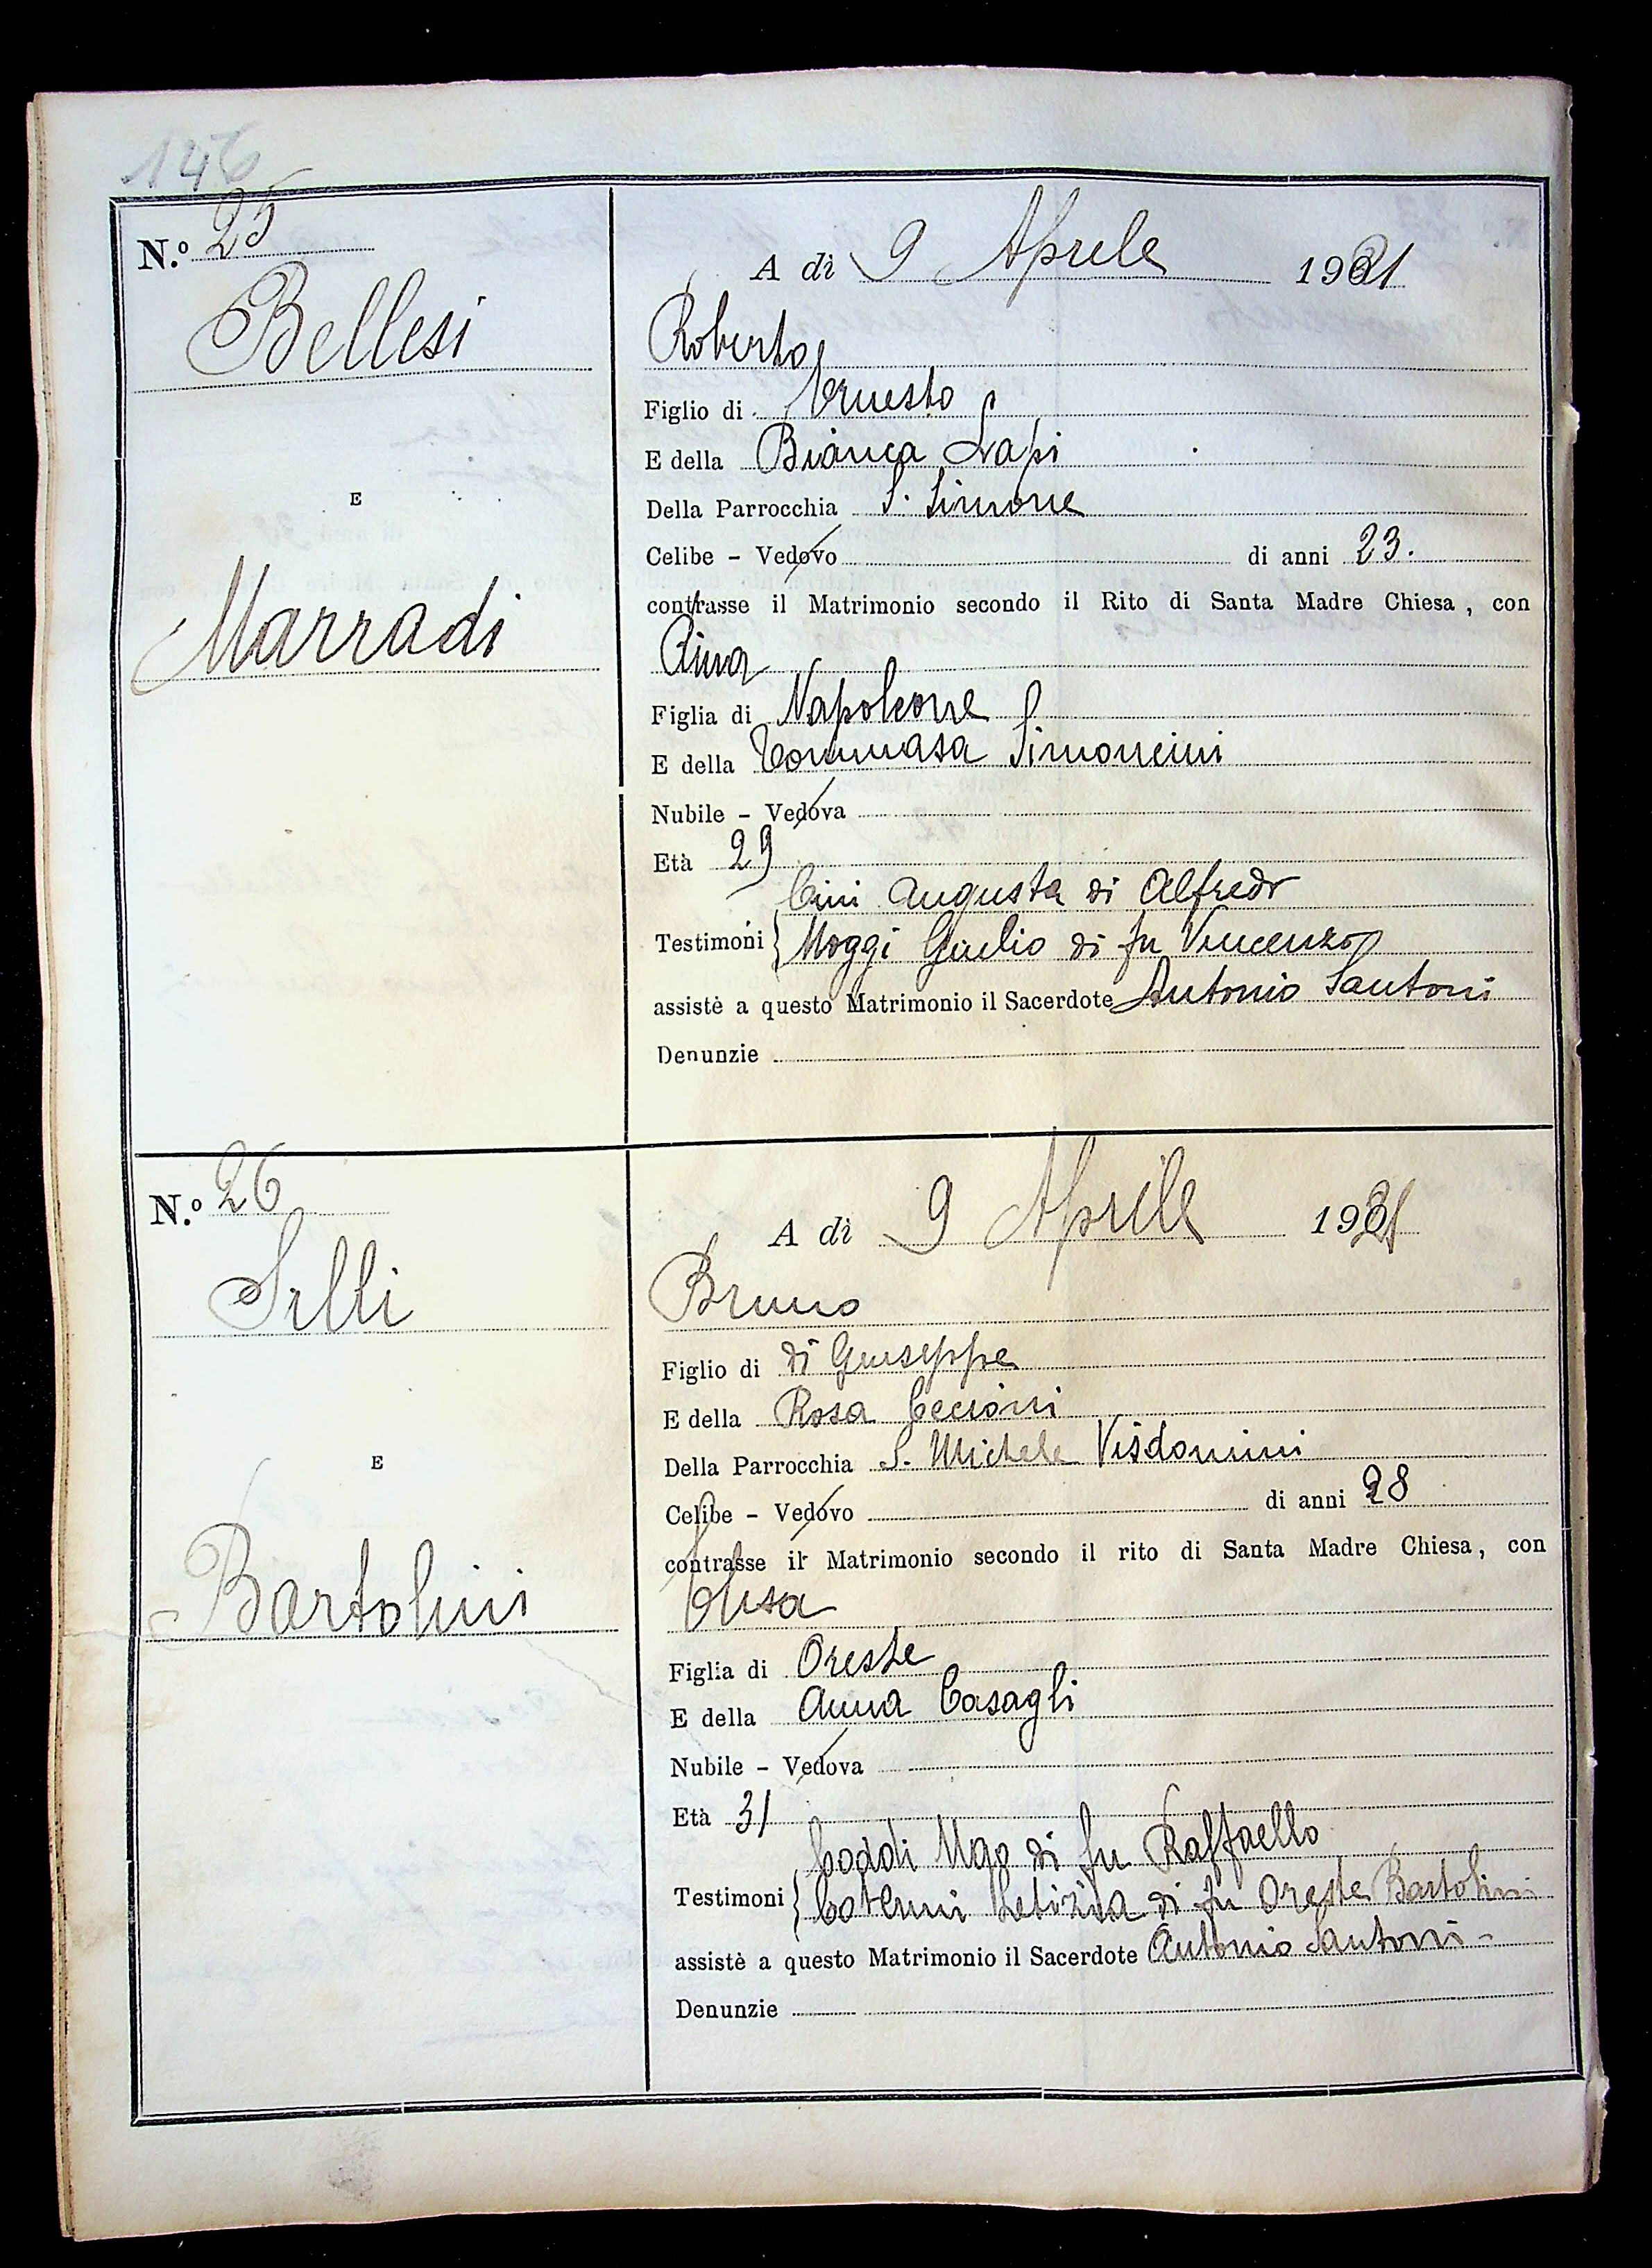 146
N.º 25
Bellesi
E
Marradi
A dì 9 Aprile 1921
Roberto
Figlio di Ernesto
E della Bianca Lapi
Della Parrocchia S. Simone
Celibe - Vedovo di anni 23.
contrasse il Matrimonio secondo il Rito di Santa Madre Chiesa, con
Rina
Figlia di Napoleone
E della Tommasa Simoncini
Nubile - Vedova
Età 29
Cini Augusta di Alfredo
Testimoni Moggi Giulio di fu Vincenzo
assistè a questo Matrimonio il Sacerdote Antonio Santoni
Denunzie
N.º 26
Silli
E
Bartolini
A dì 9 Aprile 1921
Bruno
Figlio di di Giuseppe
E della Rosa Ceccioni
Della Parrocchia S. Michele Visdomini
Celibe - Vedovo di anni 28
contrasse il Matrimonio secondo il rito di Santa Madre Chiesa, con
Elisa
Figlia di Oreste
E della Anna Casagli
Nubile - Vedova
Età 31
Ugo di fu Raffaello
Testimoni Letizia di fu Oreste Bartolini
assistè a questo Matrimonio il Sacerdote Antonio Santoni -
Denunzie